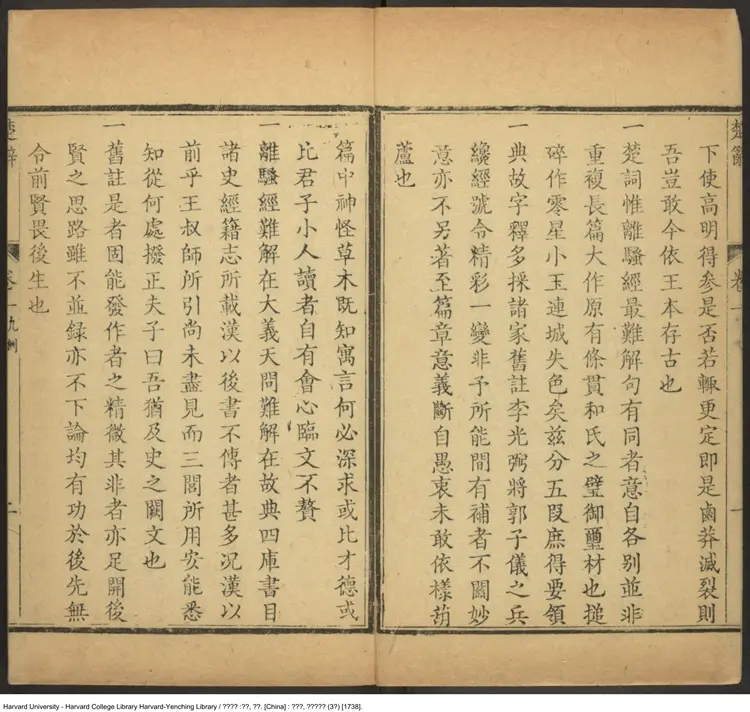 下使高明得參是否若輒更定即是鹵莽滅裂則
吾豈敢今依王本存古也
一楚詞惟離騷經最難解句有同者意自各別並非
重複長篇大作原有條貫和氏之璧御璽材也搥
碎作零星小玉連城失色矣茲分五段庶得要領
一典故字釋多採諸家舊註李光弼將郭子儀之兵
纔經號令精彩一變非予所能間有補者不闕妙
意亦不另著至篇章意義斷自愚衷未敢依樣葫
蘆也
篇中神怪草木既知寓言何必深求或比才德或
比君子小人讀者自有會心臨文不贅
一離騷經難解在大義天問難解在故典四庫書目
諸史經籍志所載漢以後書不傳者甚多况漢以
前乎王叔師所引尚未盡見而三閭所用安能悉
知從何處撥正夫子曰吾猶及史之闕文也
一舊註是者固能發作者之精微其非者亦足開後
賢之思路雖不並録亦不下論均有功於後先無
令前賢畏後生也
楚辭
卷一
一
楚辭
卷一九例
二
Harvard University - Harvard College Library Harvard-Yenching Library / ???? :??, ??. [China] : ???, ????? (3?) [1738].